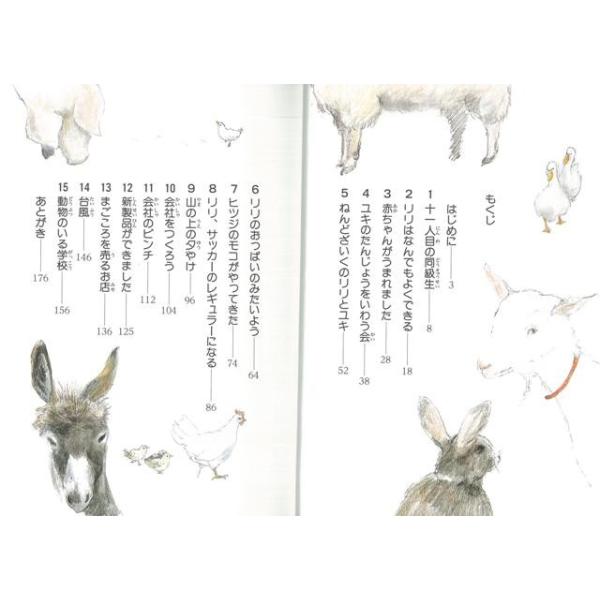 もくじ
はじめに——3
1 十一人目の同級生——8
2 リリはなんでもよくできる——18
3 赤ちゃんがうまれました——28
4 ユキのたんじょうをいわう会——38
5 ねんどざいくのリリとユキ——52
6 リリのおっぱいのみたいよう——64
7 ヒツジのモコがやってきた——74
8 リリ、サッカーのレギュラーになる——86
9 山の上の夕やけ——96
10 会社をつくろう——104
11 会社のピンチ——112
12 新製品ができました——125
13 まごころを売るお店——136
14 台風——146
15 動物のいる学校——156
あとがき——176